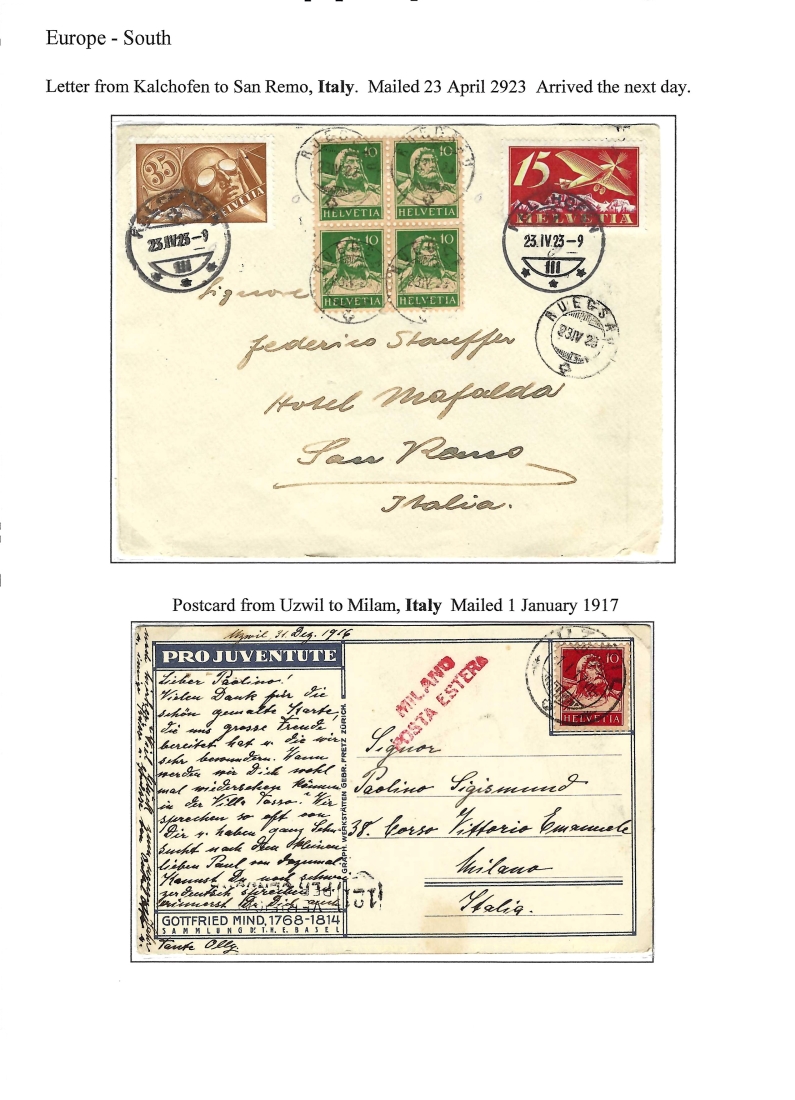 Europe - South
Letter from Kalchofen to San Remo, Italy. Mailed 23 April 2923 Arrived the next day.
35
HELVETIA
10
HELVETIA
10
HELVETIA
10
HELVETIA
10
HELVETIA
15
HELVETIA
KALCHOFEN
23.IV.23-9
III
KALCHOFEN
23.IV.23-9
III
RUEGSAU
23 IV 23
Signore
Federico Stauffer
Hotel Mafalda
San Remo
Italia.
Postcard from Uzwil to Milam, Italy Mailed 1 January 1917
Uzwil 31 Dez. 1916
PRO JUVENTUTE
Lieber Paolino!
Vielen Dank für die
schön gemalte Karte,
die uns grosse Freude
bereitet hat u. die wir
sehr bewundern. Wann
werden wir Dich wohl
mal wiedersehen können
in der Villa Tasso? Wir
sprechen so oft von
Dir u. haben ganz Sehn-
sucht nach dem kleinen
lieben Paul von dazumal.
Kannst Du noch schwei-
zerdeutsch sprechen
erinnerst Du Dich auch
GOTTFRIED MIND, 1768-1814
SAMMLUNG DR. TH. E. BASEL
Tante Olly
GRAPH. WERKSTÄTTEN GEBR. FRETZ ZÜRICH
MILANO
POSTA ESTERA
10
HELVETIA
Signor
Paolino Sigismund
38. Corso Vittorio Emanuele
Milano
Italia.